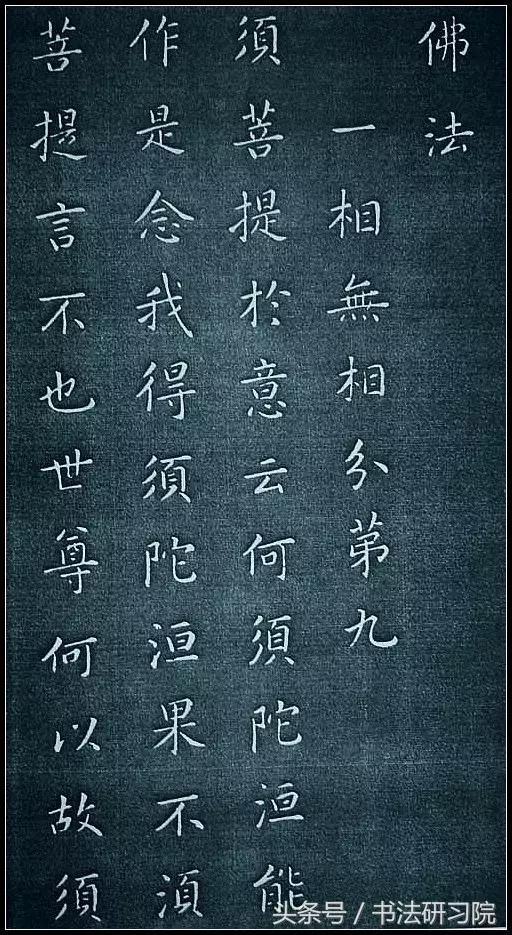 佛法
一相無相分第九
須菩提於意云何須陀洹能
作是念我得須陀洹果不湏
菩提言不也世尊何以故須
头条号／书法研习院